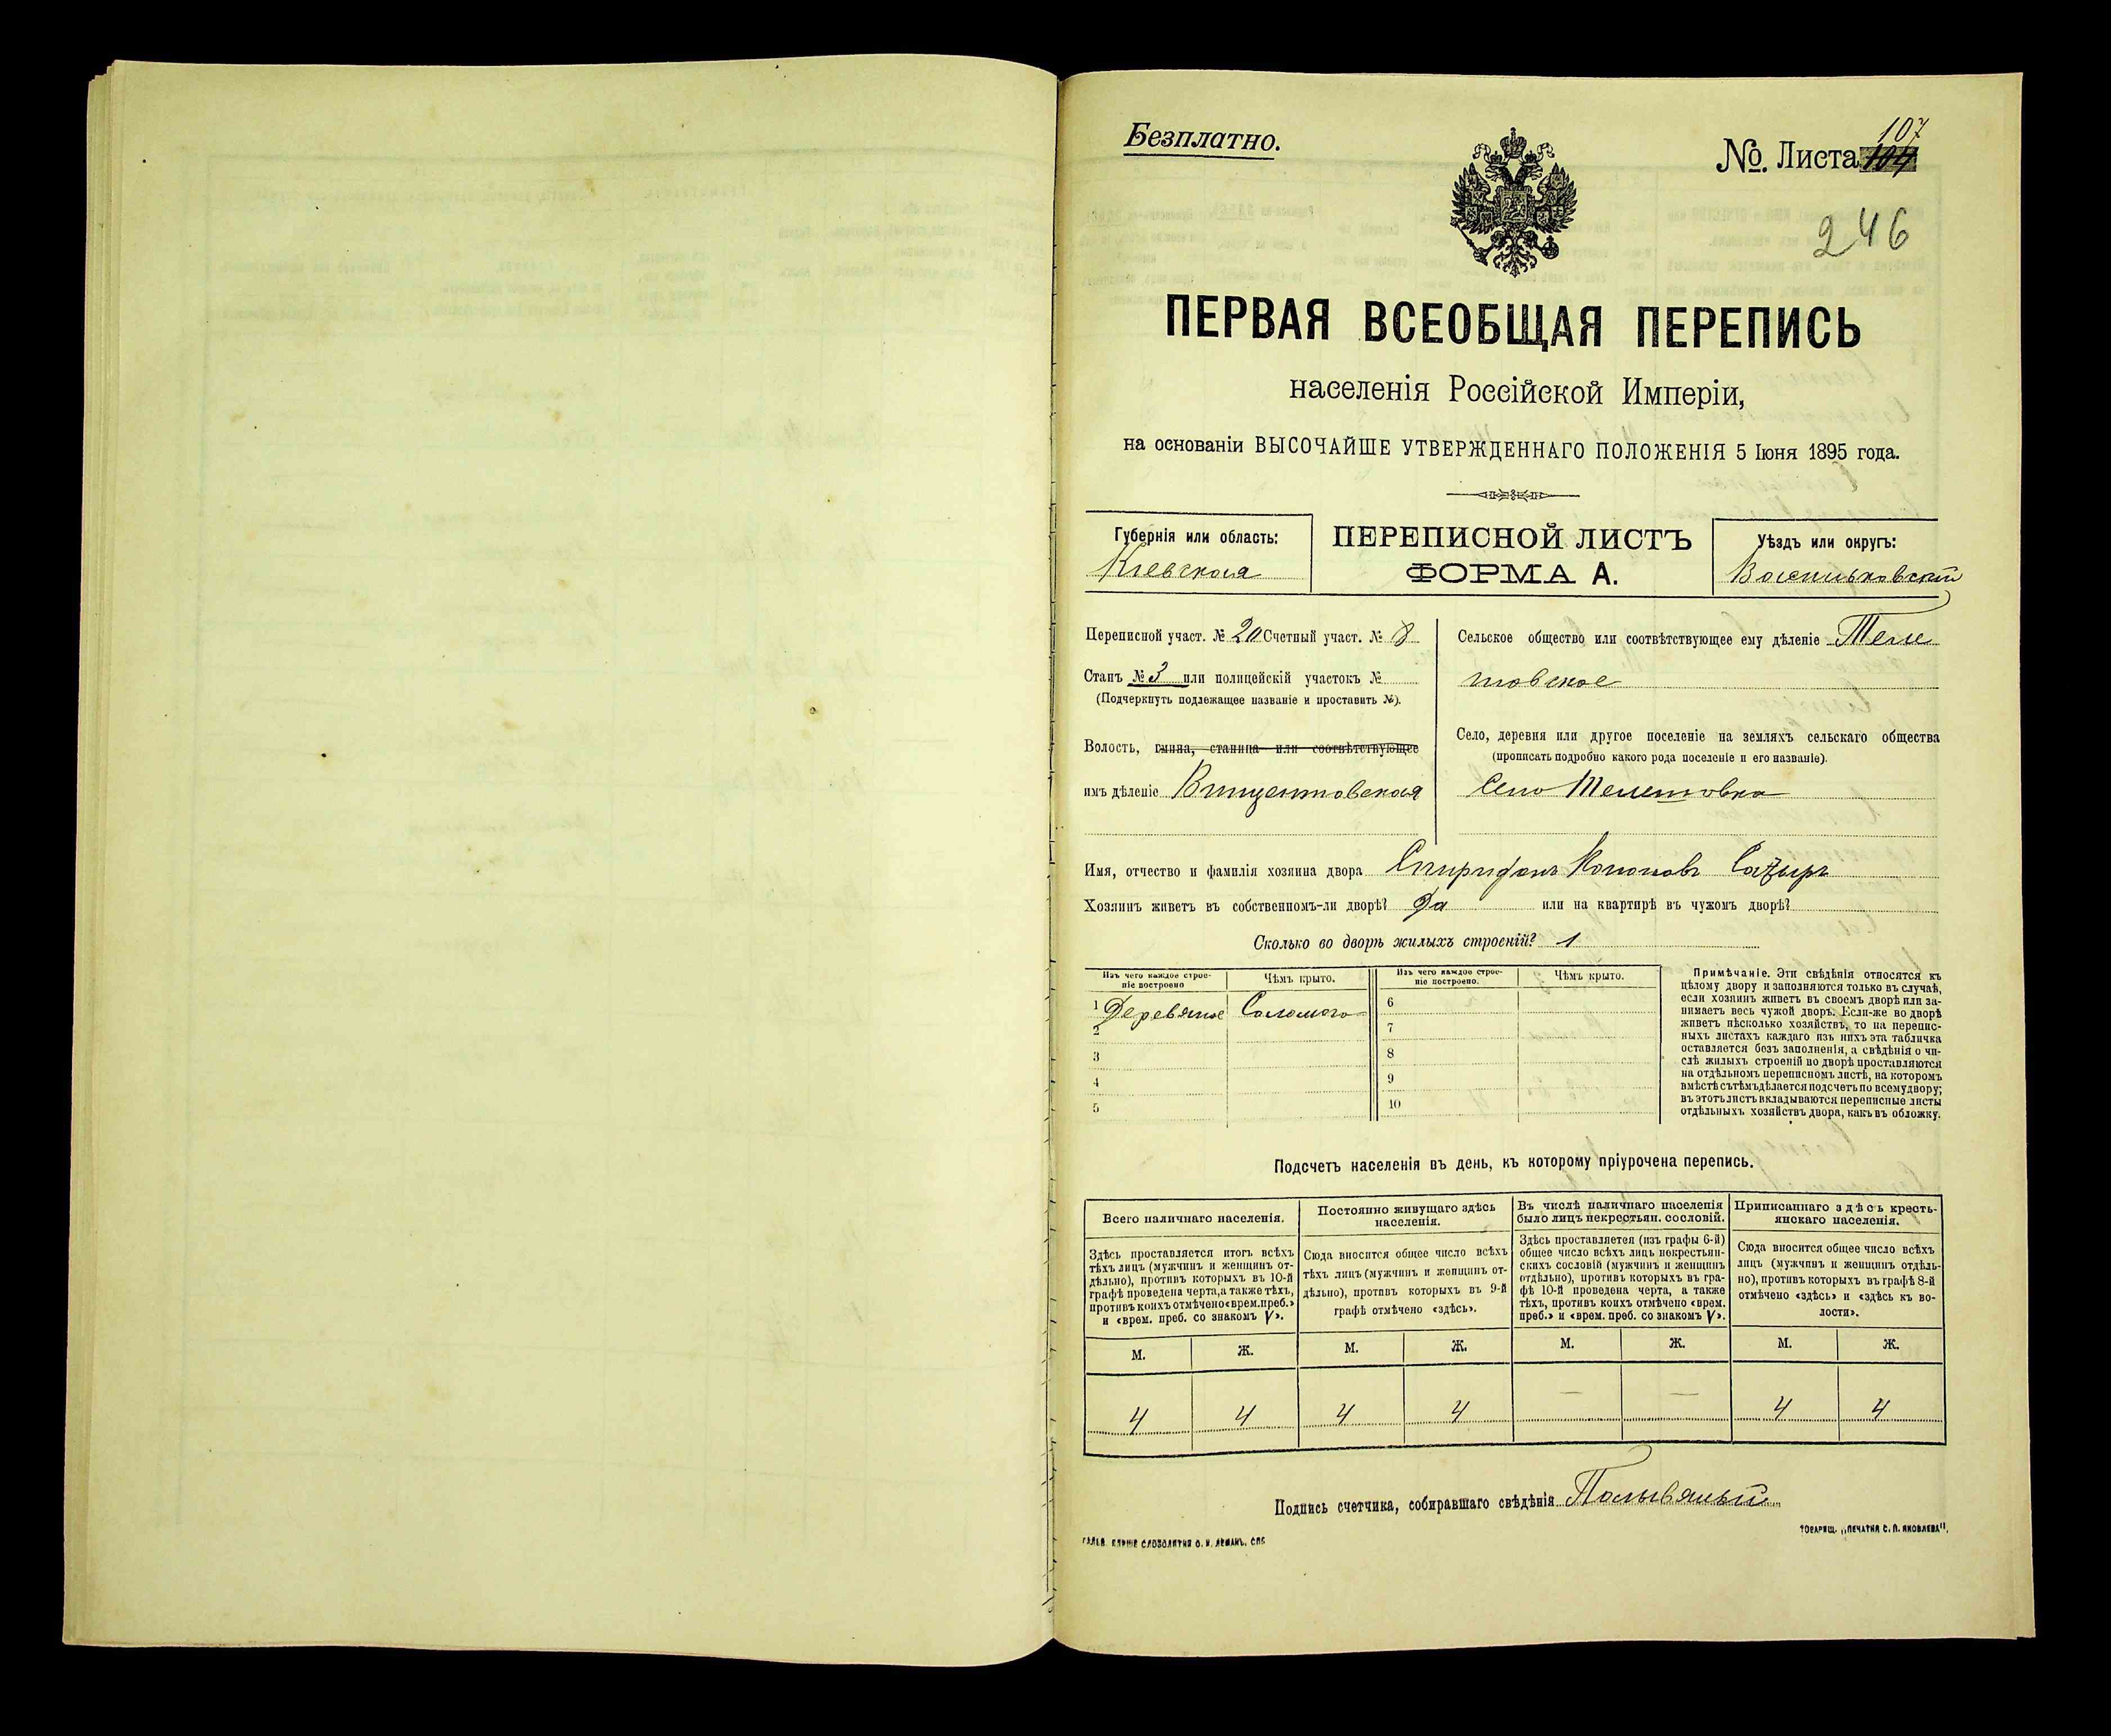 Безплатно.
№. Листа 107
246
ПЕРВАЯ ВСЕОБЩАЯ ПЕРЕПИСЬ
населенія Россійской Имперіи,
на основаніи ВЫСОЧАЙШЕ УТВЕРЖДЕННАГО ПОЛОЖЕНІЯ 5 Іюня 1895 года.
Губернія или область:
Кіевская
ПЕРЕПИСНОЙ ЛИСТЪ
ФОРМА А.
Уѣздъ или округъ:
Васильковскій
Переписной участ. № 20 Счетный участ. № 8
Станъ № 3 или полицейскій участокъ №
(Подчеркнуть подлежащее названіе и проставить №).
Волость, гмина, станица или соотвѣтствующее
имъ дѣленіе Винцентовская
Сельское общество или соотвѣтствующее ему дѣленіе Теле
товское
Село, деревня или другое поселеніе на земляхъ сельскаго общества
(прописать подробно какого рода поселеніе и его названіе).
Село Телешовка
Имя, отчество и фамилія хозяина двора Спиридонъ Кононовъ
Хозяинъ живетъ въ собственномъ-ли дворѣ? Да или на квартирѣ въ чужомъ дворѣ?
Сколько во дворѣ жилыхъ строеній? 1
Изъ чего каждое строе-
ніе построено
Чѣмъ крыто.
1 Деревяное Соломою
2
3
4
5
Изъ чего каждое строе-
ніе построено.
Чѣмъ крыто.
6
7
8
9
10
Примѣчаніе. Эти свѣдѣнія относятся къ
цѣлому двору и заполняются только въ случаѣ,
если хозяинъ живетъ въ своемъ дворѣ или за-
нимаетъ весь чужой дворъ. Если-же во дворѣ
живетъ нѣсколько хозяйствъ, то на перепис-
ныхъ листахъ каждаго изъ нихъ эта табличка
оставляется безъ заполненія, а свѣдѣнія о чи-
слѣ жилыхъ строеній во дворѣ проставляются
на отдѣльномъ переписномъ листѣ, на которомъ
вмѣстѣ съ тѣмъ дѣлается подсчетъ по всему двору;
въ этотъ листъ вкладываются переписные листы
отдѣльныхъ хозяйствъ двора, какъ въ обложку.
Подсчетъ населенія въ день, къ которому пріурочена перепись.
Всего наличнаго населенія.
Здѣсь проставляется итогъ всѣхъ
тѣхъ лицъ (мужчинъ и женщинъ от-
дѣльно), противъ которыхъ въ 10-й
графѣ проведена черта, а также тѣхъ,
противъ коихъ отмѣчено «врем. преб.»
и «врем. преб. со знакомъ V».
Постоянно живущаго здѣсь
населенія.
Сюда вносится общее число всѣхъ
тѣхъ лицъ (мужчинъ и женщинъ от-
дѣльно), противъ которыхъ въ 9-й
графѣ отмѣчено «здѣсь».
Въ числѣ наличнаго населенія
было лицъ некрестьян. сословій.
Здѣсь проставляется (изъ графы 6-й)
общее число всѣхъ лицъ некрестьян-
скихъ сословій (мужчинъ и женщинъ
отдѣльно), противъ которыхъ въ гра-
фѣ 10-й проведена черта, а также
тѣхъ, противъ коихъ отмѣчено «врем.
преб.» и «врем. преб. со знакомъ V».
Приписаннаго здѣсь кресть-
янскаго населенія.
Сюда вносится общее число всѣхъ
лицъ (мужчинъ и женщинъ отдѣль-
но), противъ которыхъ въ графѣ 8-й
отмѣчено «здѣсь» и «здѣсь къ во-
лости».
М. Ж. М. Ж. М. Ж. М. Ж.
4 4 4 4 — — 4 4
Подпись счетчика, собиравшаго свѣдѣнія
ТОВАРИЩ. „ПЕЧАТНЯ С. П. ЯКОВЛЕВА".